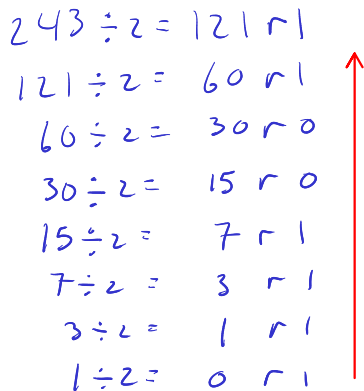 243 ÷ 2 = 121 r 1
121 ÷ 2 = 60 r 1
60 ÷ 2 = 30 r 0
30 ÷ 2 = 15 r 0
15 ÷ 2 = 7 r 1
7 ÷ 2 = 3 r 1
3 ÷ 2 = 1 r 1
1 ÷ 2 = 0 r 1